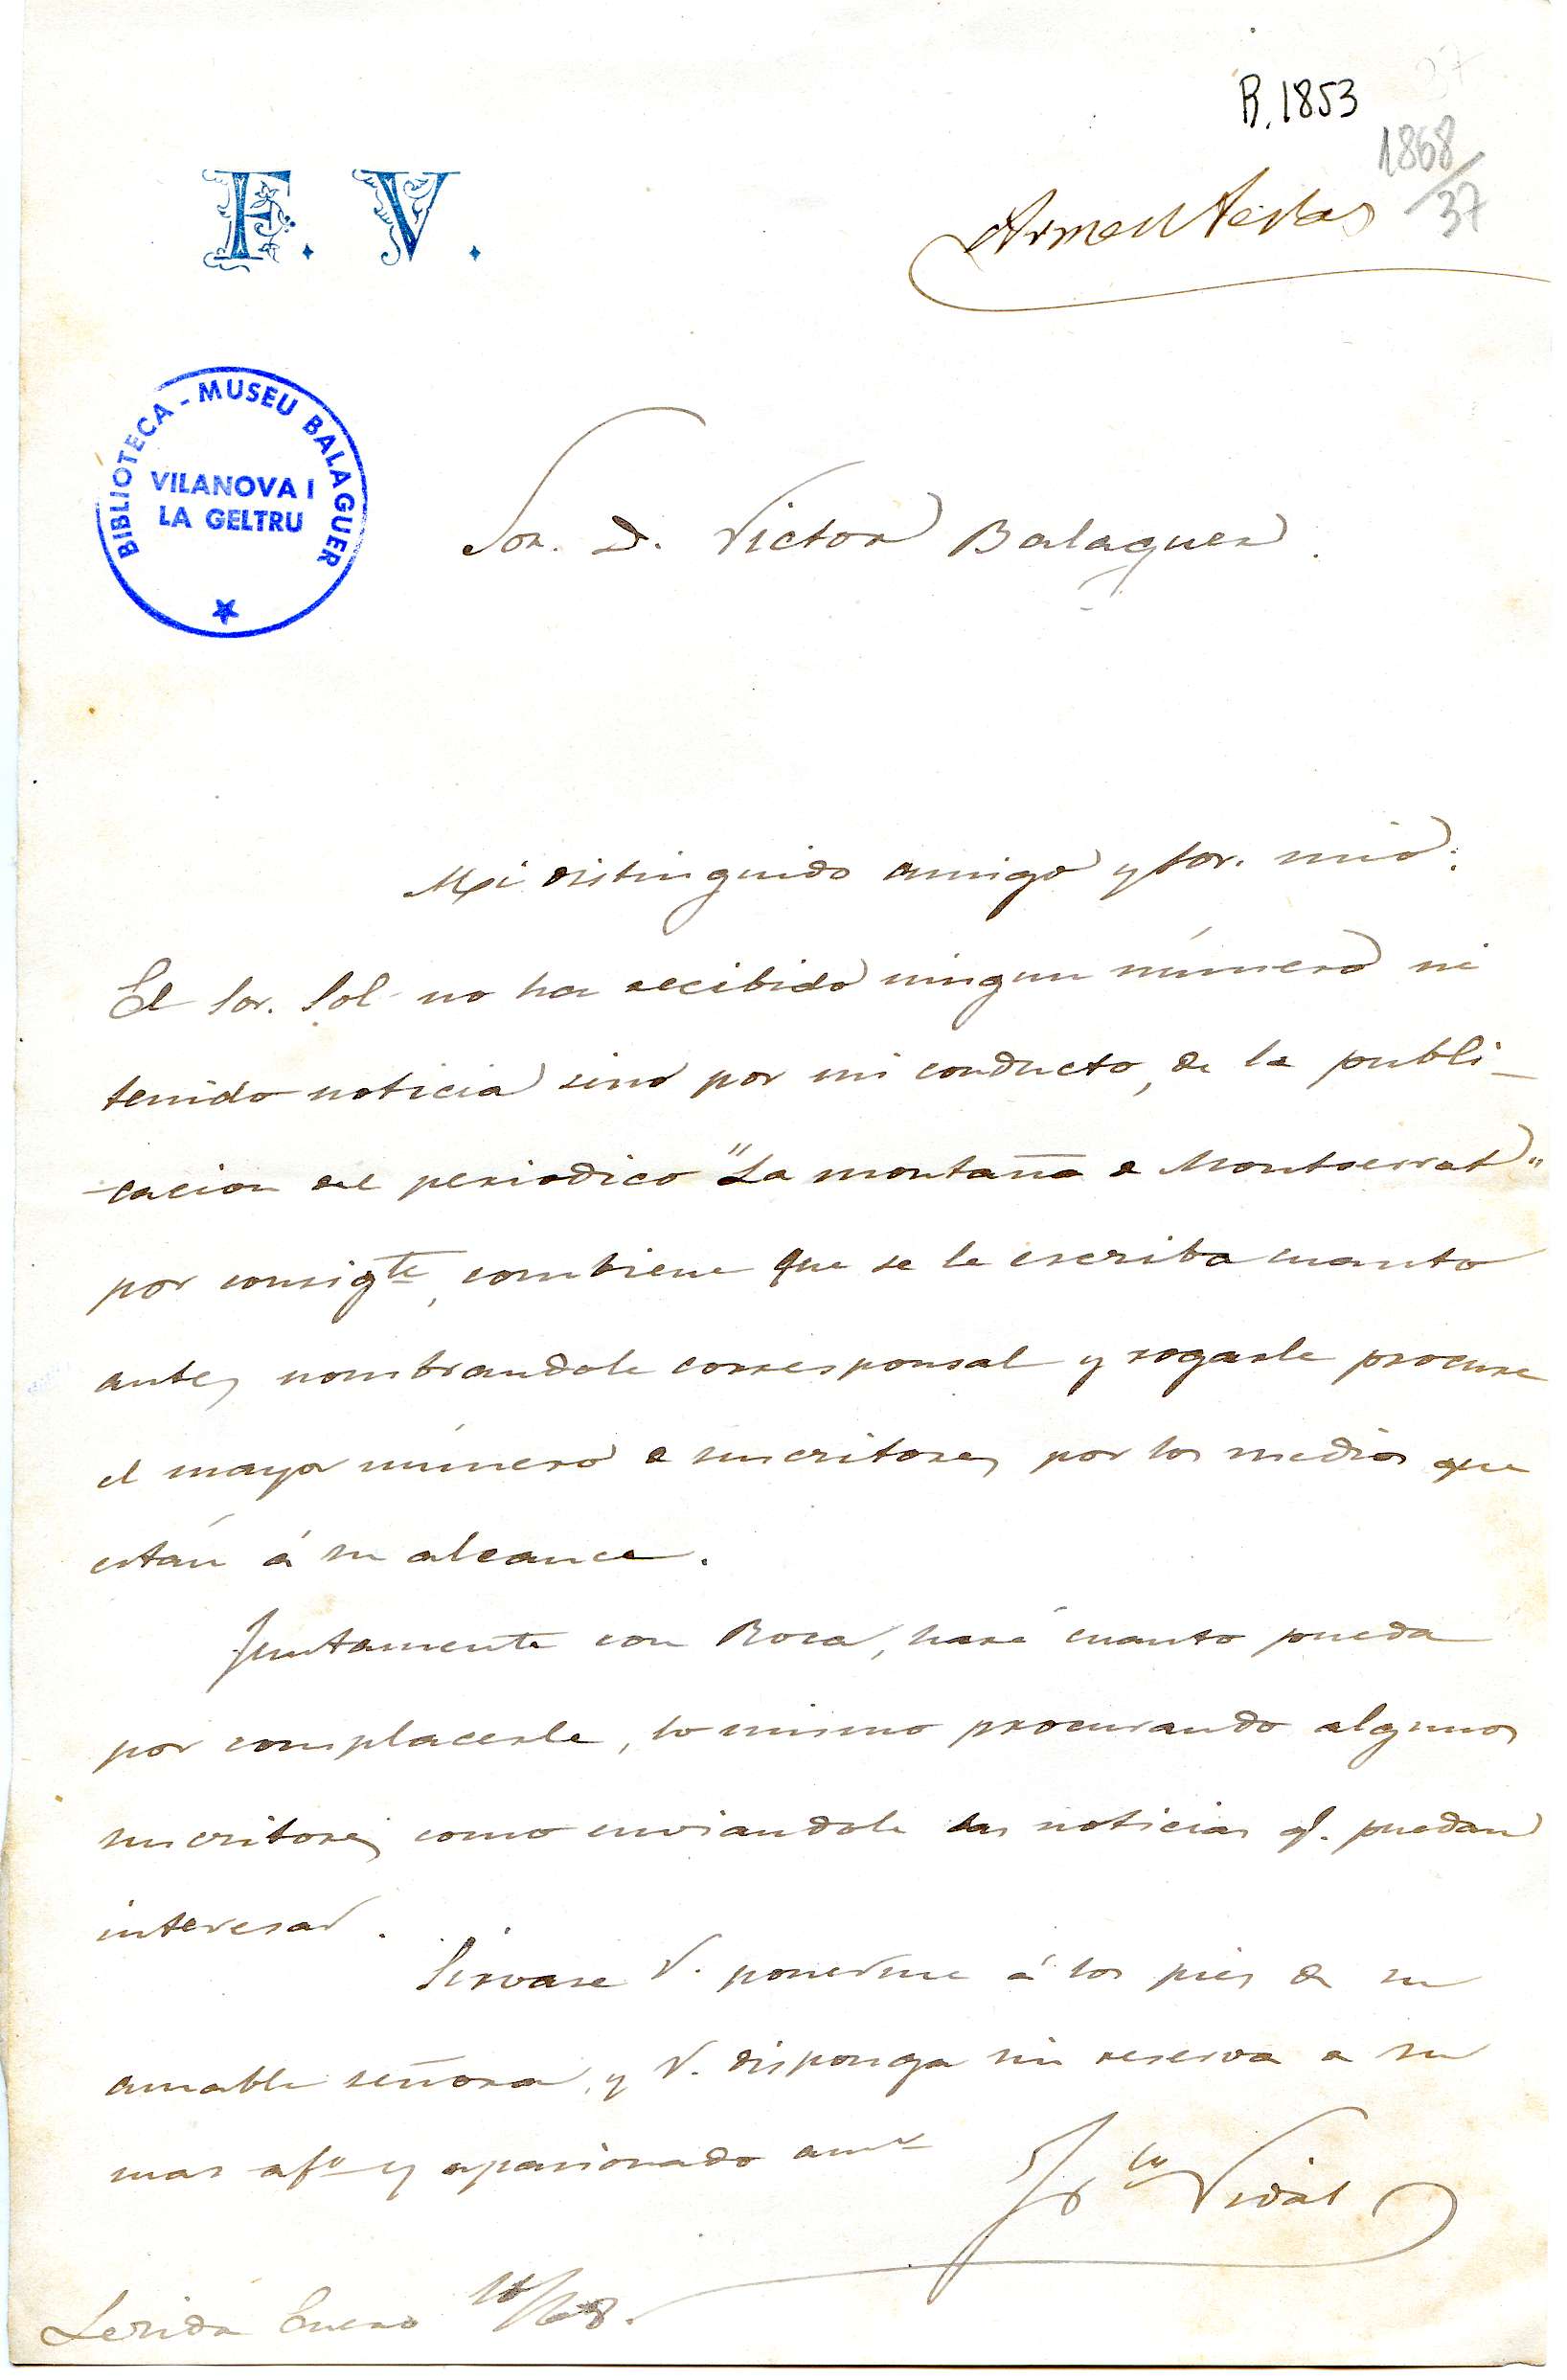 R. 1853
1868/37
F. V.
Armenteras
BIBLIOTECA - MUSEU BALAGUER
VILANOVA I
LA GELTRU
Sor. D. Victor Balaguer.
Mi distinguido amigo y Sor. mio:
El Sor. Sol no ha recibido ningun número ni
tenido noticia sino por mi conducto, de la publi-
-cacion del periodico "La montaña de Montserrat"
por consigte, combiene que se le escriba cuanto
antes nombrandole corresponsal y rogarle procure
el mayor número de suscritores por los medios que
están á su alcance.
Juntamente con Roca, haré cuanto pueda
por complacerle, lo mismo procurando algunos
suscritores como enviandole las noticias q. puedan
interesar.
Sirvase V. ponerme á los pies de su
amable señora, y V. disponga sin reserva de su
mas afo y apasionado amo
Fco Vidal
Lerida Enero /68.